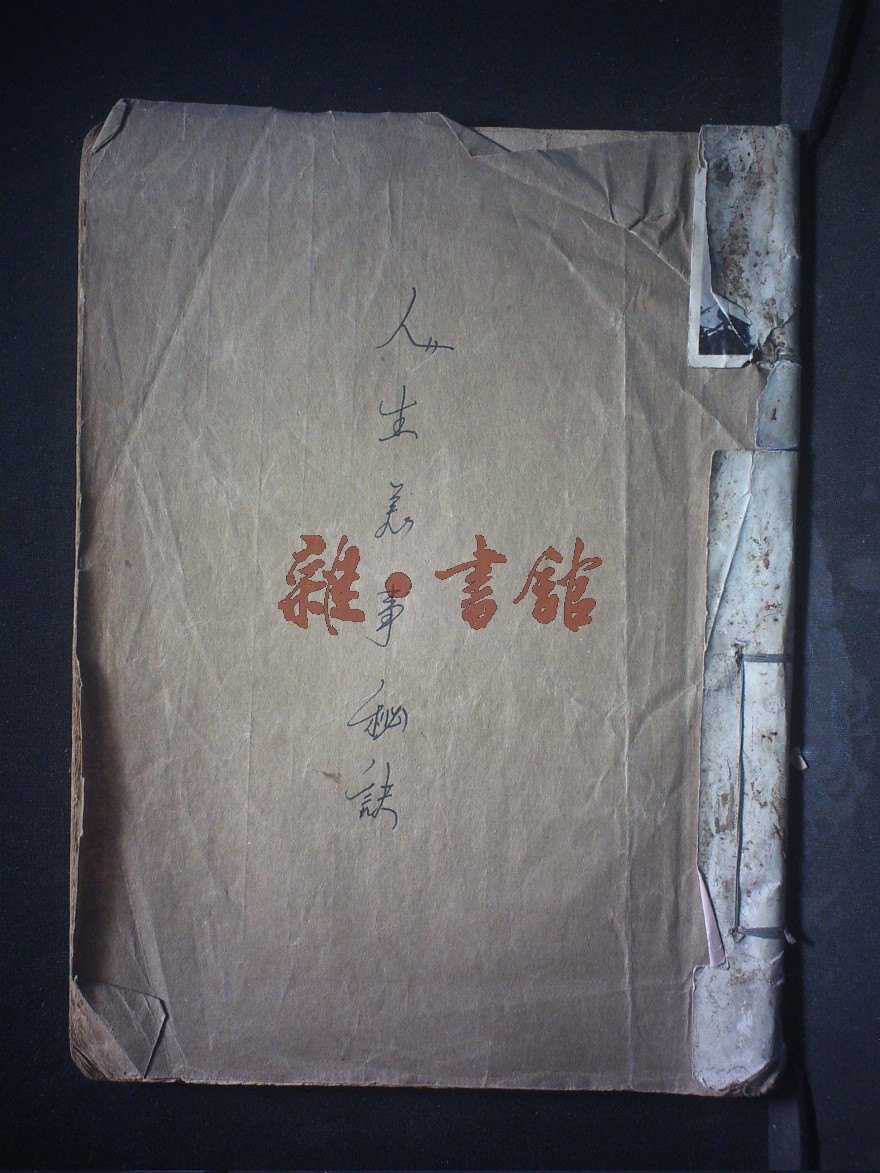 人生事秘訣
雜•書館